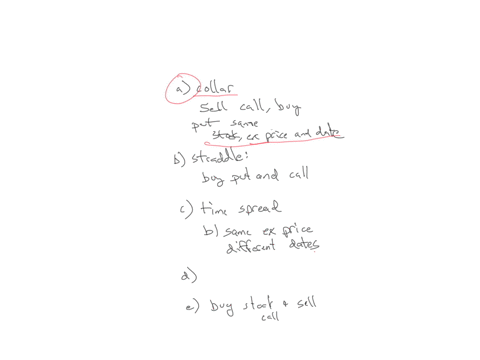 a) collar
Sell call, buy
put same
stock, ex price and date
b) straddle:
buy put and call
c) time spread
b) same ex price
different dates
d)
e) buy stock + sell
call